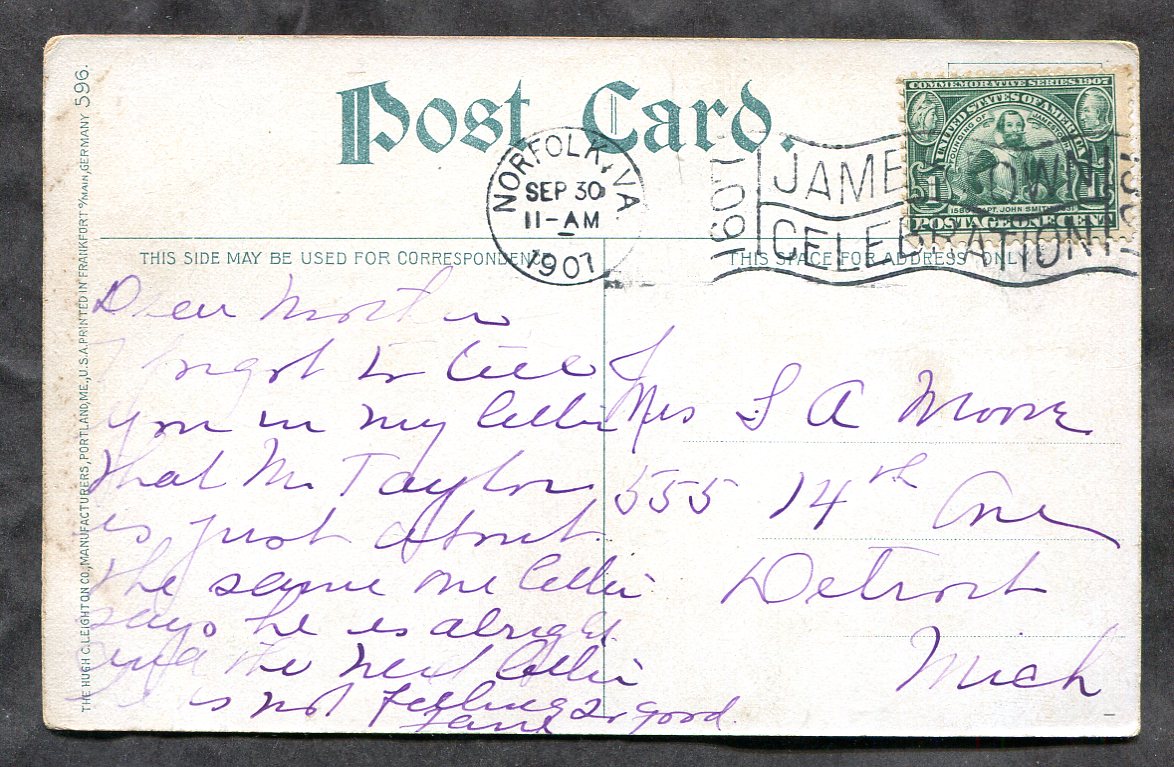 Post Card.
THE HUGH C. LEIGHTON CO., MANUFACTURERS, PORTLAND, ME., U.S.A. PRINTED IN FRANKFORT O/MAIN, GERMANY 596.
NORFOLK, VA.
SEP 30
11-AM
1907
1607
JAMESTOWN
CELEBRATION
COMMEMORATIVE SERIES 1907
UNITED STATES OF AMERICA
FOUNDING OF JAMESTOWN
1 1
CAPT. JOHN SMITH
POSTAGE ONE CENT
THIS SIDE MAY BE USED FOR CORRESPONDENCE
THIS SPACE FOR ADDRESS ONLY
Dear Mother
I forgot to tell
you in my letter
that Mr Taylor
is just about
the same one letter
says he is alright
and the next letter
he is not feeling so good.
Mrs S A Moore
555 14th Ave
Detroit
Mich